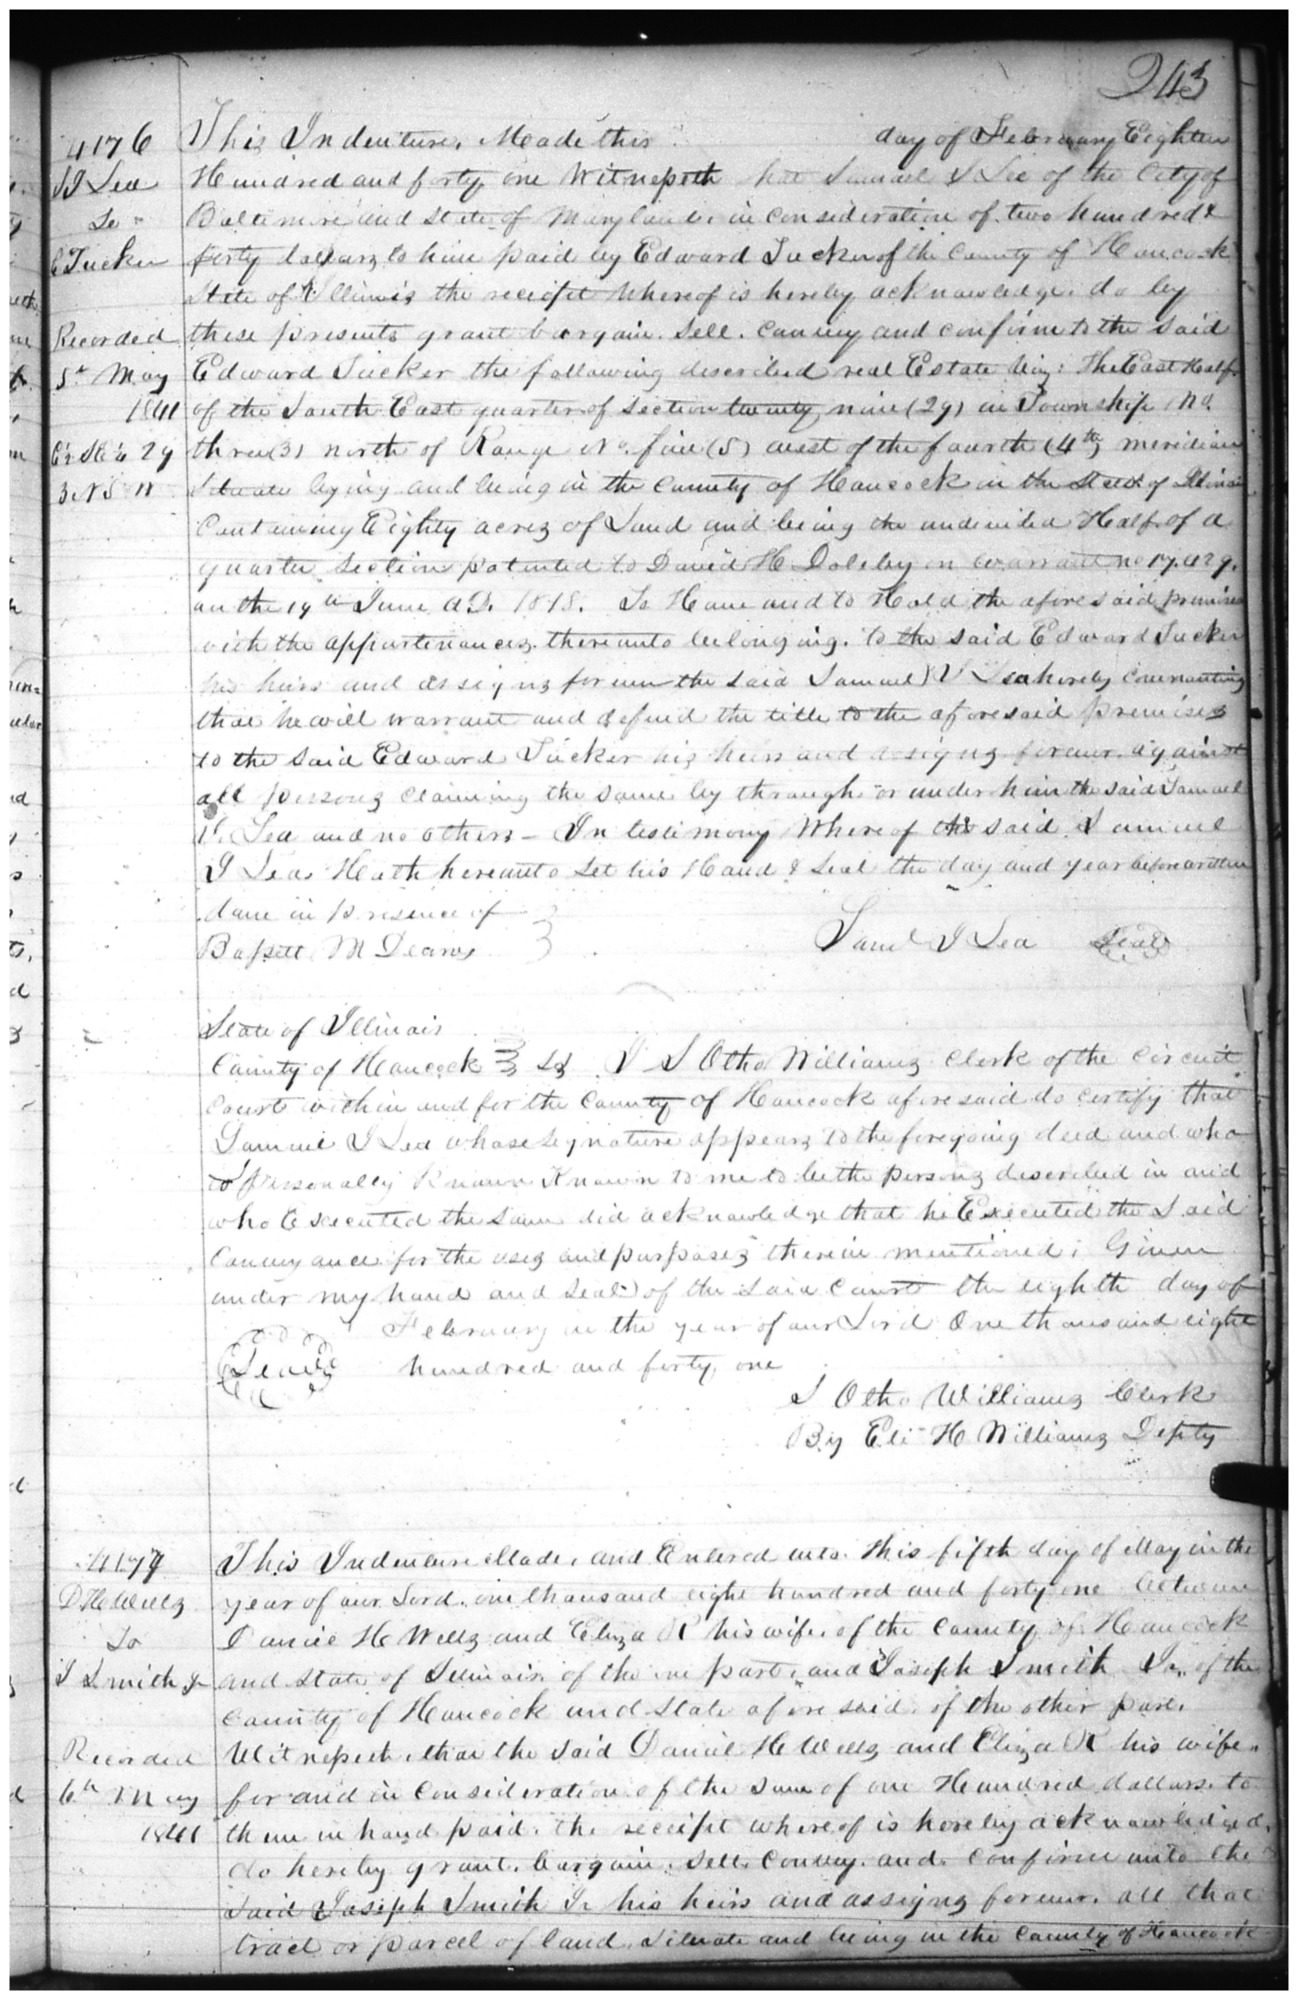 243
4176
S I Lea
To
E Tucker
Recorded
5th May
1841
E½ SE¼ 29
3 N 5 W
This Indenture, Made this day of February Eighteen
Hundred and forty one Witnesseth that Samuel I Lee of the City of
Baltimore and State of Maryland in consideration of two hundred &
forty dollars to him paid by Edward Tucker of the County of Hancock
State of Illinois the reciept whereof is hereby acknowledge do by
these presents grant bargain. Sell. Convey and confirm to the said
Edward Tucker the following described real Estate viz: The East Half
of the South East quarter of Section twenty nine (29) in Township No.
three (3) north of Range No. five (5) west of the fourth (4th) meridian
Situate lying and being in the County of Hancock in the State of Illinois
Containing Eighty acres of Land and being the undivided Half of a
quarter Section patented to David H on warrant no 17.
on the 19th June A.D. 1818. To Have and to Hold the aforesaid premises
with the appurtenances thereunto belonging. to the said Edward Tucker
his heirs and assigns forever the said Samuel I Lea hereby covenanting
that he will warrant and defend the title to the aforesaid premises
to the said Edward Tucker his heirs and assigns forever against
all persons claiming the same by through or under him the said Samuel
I. Lea and no others - In testimony Where of the said Samuel
I Lea Hath hereunto Set his Hand & Seal the day and year before written
done in presence of
Bassett M Deane
Saml I Lea Seal
State of Illinois
County of Hancock } ss I S Otho Williams Clerk of the Circuit
Court within and for the County of Hancock aforesaid do certify that
Samuel I Lea whose signature appears to the foregoing deed and who
is personally Known Known to me to be the persons described in and
who Executed the same did acknowledge that he Executed the Said
Conveyance for the uses and purposes therein mentioned; Given
under my hand and seal of the said Court the eighth day of
February in the year of our Lord One thousand eight
Seal hundred and forty one
S Otho Williams Clerk
By Eli H Williams Depty
4177
D H Wells
To
J Smith Jr
Recorded
6th May
1841
This Indenture Made, and Entered into this fifth day of May in the
year of our Lord, one thousand eight hundred and forty one between
Daniel H Wells and Eliza R his wife, of the County of Hancock
and State of Illinois of the one part, and Joseph Smith Jr, of the
County of Hancock and State aforesaid, of the other part.
Witnesseth, that the said Daniel H Wells and Eliza R his wife,
for and in Consideration of the sum of one Hundred dollars to
them in hand paid, the reciept whereof is hereby acknowledged,
do hereby grant, bargain, sell, convey, and confirm unto the
said Joseph Smith Jr his heirs and assigns forever, all that
tract or parcel of land, Situate and being in the County of Hancock